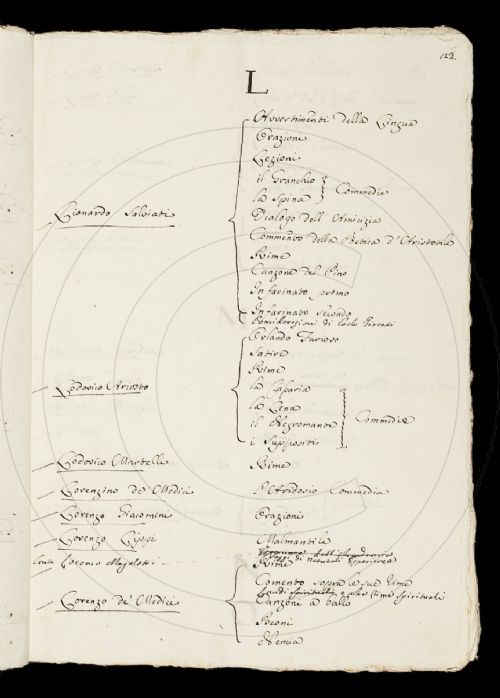 122.
L
Lionardo Salviati
Avvertimenti della Lingua
Orazioni
Lezioni
il Granchio
la Spina
Commedie
Dialogo dell'Amicizia
Commento della Poetica d'Aristotile
Rime
Canzone del Pino
Infarinato primo
Infarinato Secondo
Considerazioni di Carlo Fioretti
Lodovico Ariosto
Orlando Furioso
Satire
Rime
la Casaria
la Lena
il Negromante
i Suppositi
Commedie
Lodovico Martelli
Rime
Lorenzino de' Medici
l'Aridosio Commedia
Lorenzo Giacomini
Orazioni
Lorenzo Lippi
Malmantile
Conte Lorenzo Magalotti
Saggi di Naturali Esperienze
Lorenzo de' Medici
Rime
Comento sopra le sue Rime
Laudi spirituali, e altre Rime Spirituali
Canzone a ballo
Beoni
Nencia